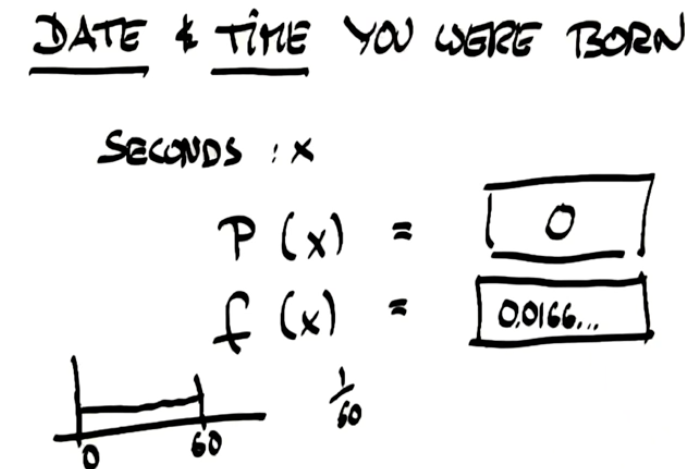 DATE & TIME YOU WERE BORN
SECONDS : X
P (x) = 0
f (x) = 0.0166...
0 60
1/60